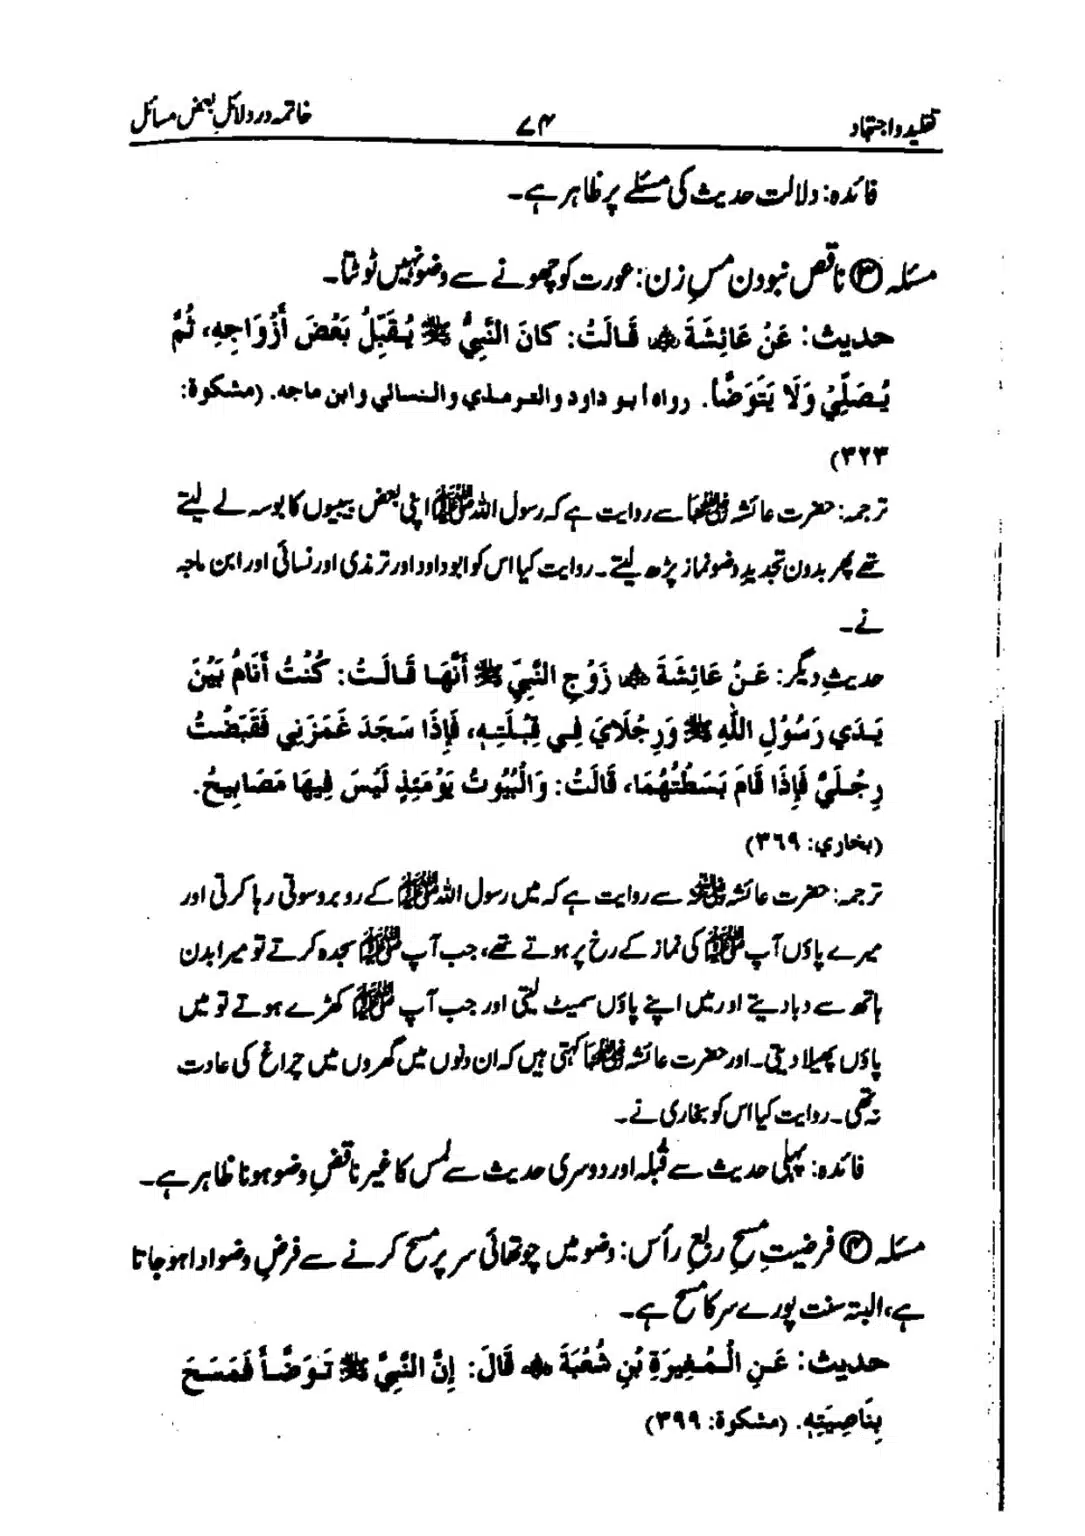 تقلید واجتہاد ۷۴ خاتمہ در دلائلِ بعض مسائل
فائدہ: دلالت حدیث کی مسئلے پر ظاہر ہے۔
مسئلہ ③ ناقص نبودن مسِ زن: عورت کو چھونے سے وضو نہیں ٹوٹتا۔
حدیث: عَنْ عَائِشَةَ ؓ قَالَتْ: كَانَ النَّبِيُّ ﷺ يُقَبِّلُ بَعْضَ أَزْوَاجِهِ، ثُمَّ
يُصَلِّيْ وَلَا يَتَوَضَّأُ. رواه أبو داود والترمذي والنسائي وابن ماجه. (مشكوة:
۳۲۳)
ترجمہ: حضرت عائشہ ؓ سے روایت ہے کہ رسول اللہ ﷺ اپنی بعض بیبیوں کا بوسہ لے لیتے
تھے پھر بدون تجدیدِ وضو نماز پڑھ لیتے۔ روایت کیا اس کو ابوداود اور ترمذی اور نسائی اور ابن ماجہ
نے۔
حدیثِ دیگر: عَنْ عَائِشَةَ ؓ زَوْجِ النَّبِيِّ ﷺ أَنَّهَا قَالَتْ: كُنْتُ أَنَامُ بَيْنَ
يَدَي رَسُوْلِ اللهِ ﷺ وَرِجْلَايَ فِي قِبْلَتِهِ، فَإِذَا سَجَدَ غَمَزَنِي فَقَبَضْتُ
رِجْلَيَّ فَإِذَا قَامَ بَسَطْتُهُمَا، قَالَتْ: وَالْبُيُوْتُ يَوْمَئِذٍ لَيْسَ فِيهَا مَصَابِيحُ.
(بخاري: ٣٦٩)
ترجمہ: حضرت عائشہ ؓ سے روایت ہے کہ میں رسول اللہ ﷺ کے روبرو سوتی رہا کرتی اور
میرے پاؤں آپ ﷺ کی نماز کے رخ پر ہوتے تھے، جب آپ ﷺ سجدہ کرتے تو میرا بدن
ہاتھ سے دبادیتے اور میں اپنے پاؤں سمیٹ لیتی اور جب آپ ﷺ کھڑے ہوتے تو میں
پاؤں پھیلا دیتی۔ اور حضرت عائشہ ؓ کہتی ہیں کہ ان دنوں میں گھروں میں چراغ کی عادت
نہ تھی۔ روایت کیا اس کو بخاری نے۔
فائدہ: پہلی حدیث سے قُبلہ اور دوسری حدیث سے لمس کا غیر ناقضِ وضو ہونا ظاہر ہے۔
مسئلہ ④ فرضیتِ مسح ربع رأس: وضو میں چوتھائی سر پر مسح کرنے سے فرضِ وضو ادا ہوجاتا
ہے، البتہ سنت پورے سر کا مسح ہے۔
حدیث: عَنِ الْمُغِيرَةِ بْنِ شُعْبَةَ ؓ قَالَ: إِنَّ النَّبِيَّ ﷺ تَوَضَّأَ فَمَسَحَ
بِنَاصِيَتِهِ. (مشكوة: ۳۹۹)